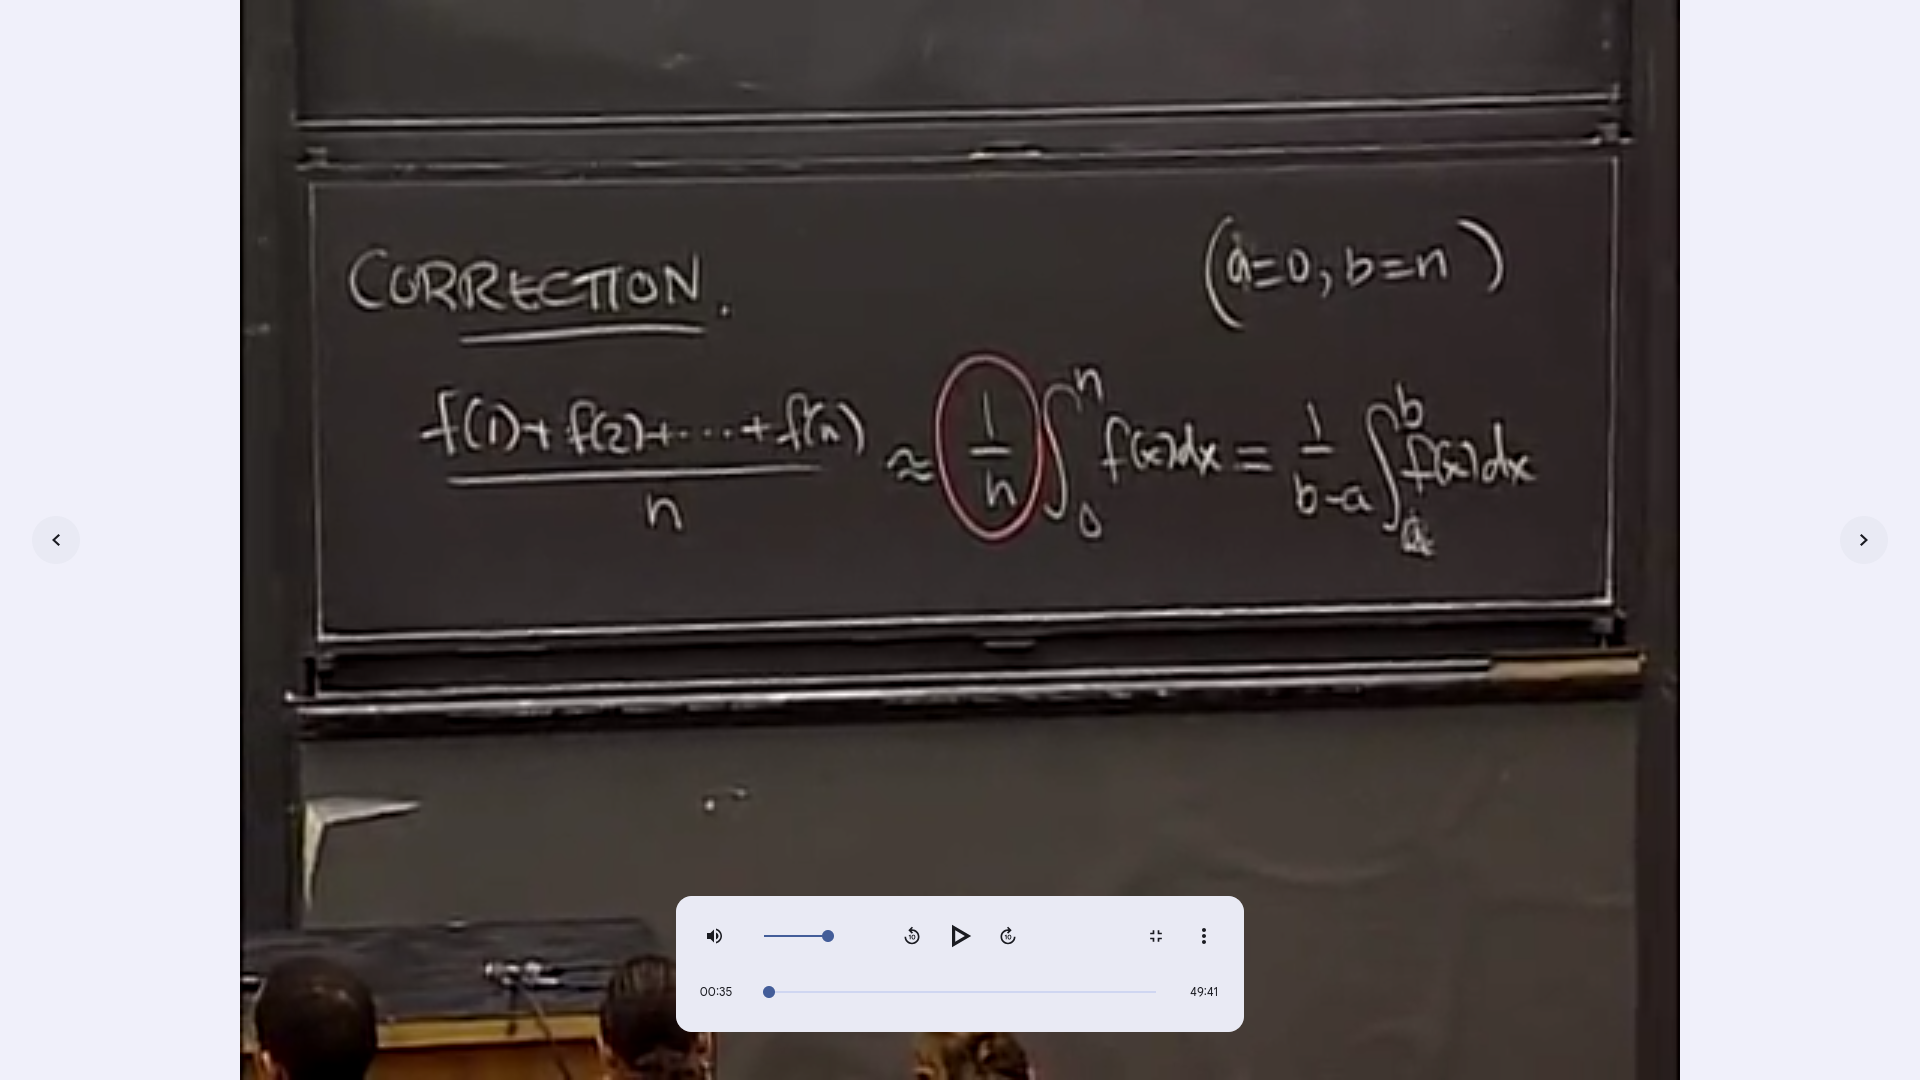 CORRECTION.
(a=0, b=n)
f(1)+f(2)+...+f(n) / n ≈ 1/n ∫₀ⁿ f(x)dx = 1/(b-a) ∫ₐᵇ f(x)dx
10 10
00:35 49:41